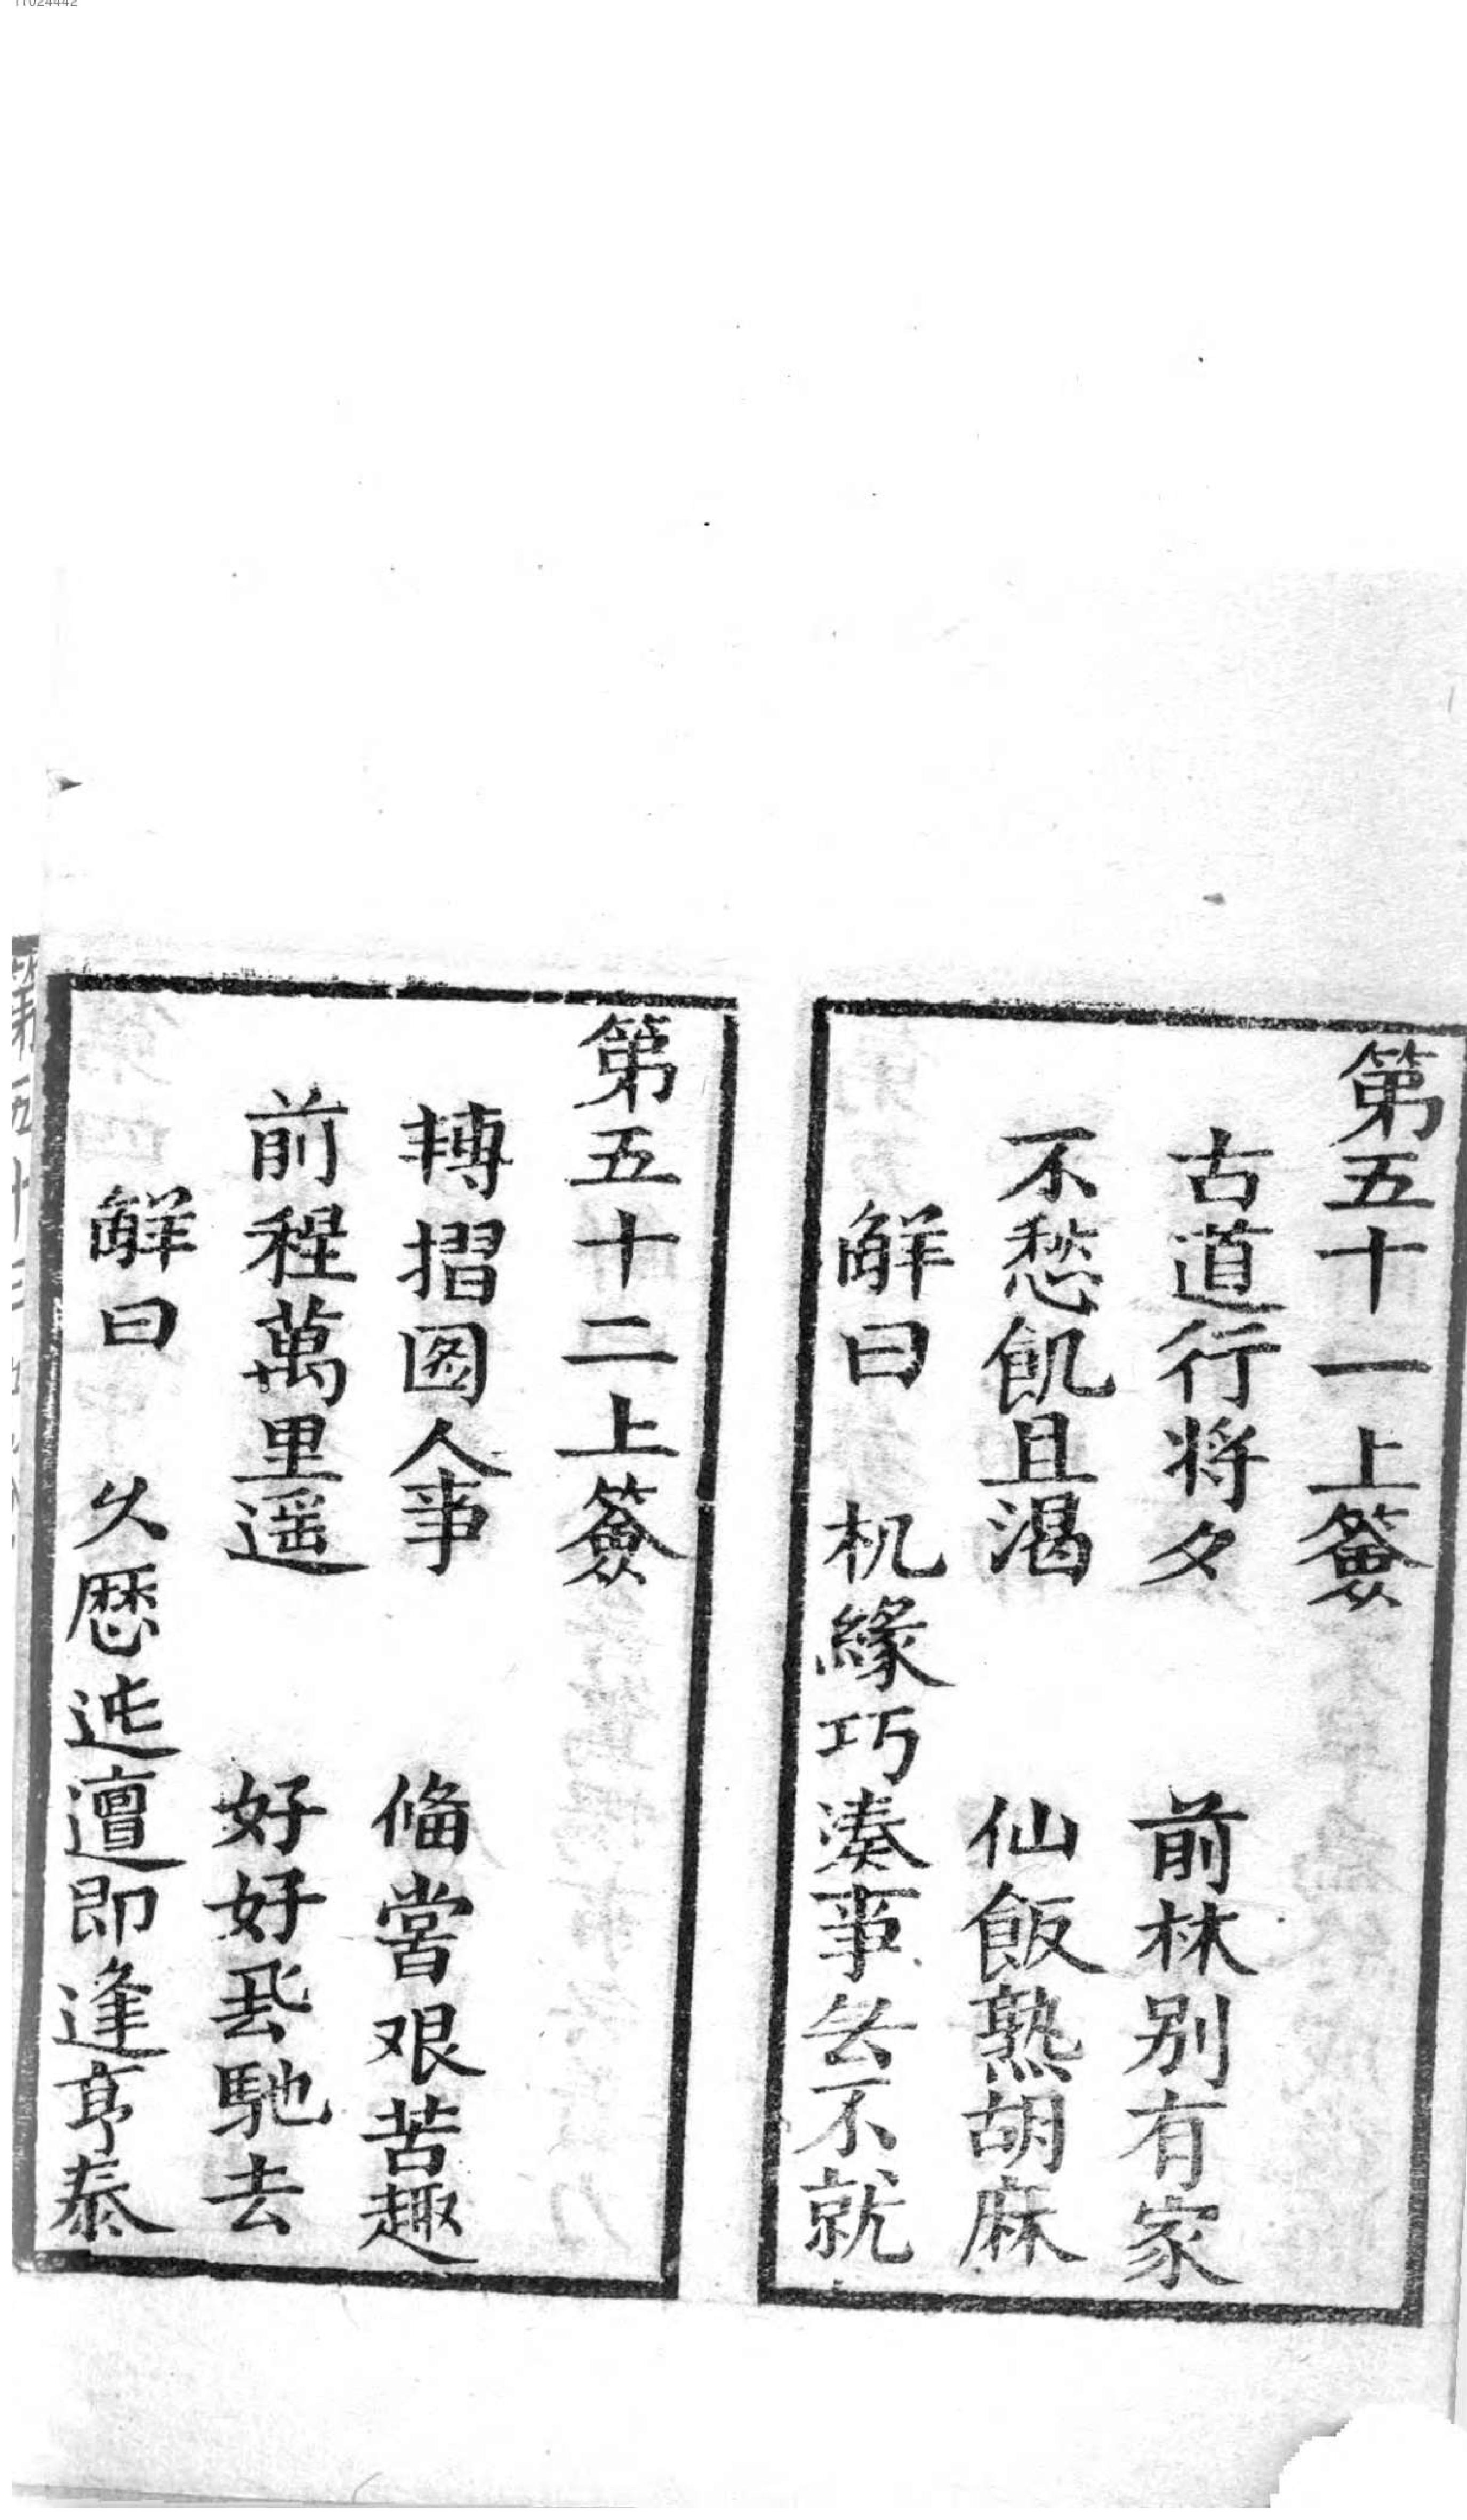 11024442
第五十一上簽
古道行将夕　前林别有家
不愁飢且渴　仙飯熟胡麻
解曰　机緣巧湊事无不就
第五十二上簽
轉摺图人事　偹嘗艰苦趣
前程萬里遥　好好飛馳去
解曰　久歷迍邅即逢亨泰
第五十三